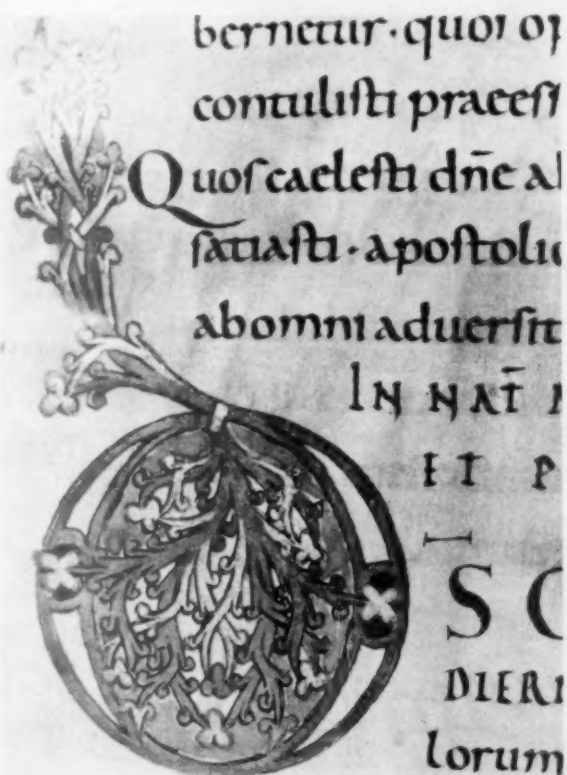 bernetur · quoi op
contulisti praeest
Quos caelesti dn̄e al
satiasti · apostolic
ab omni aduersit
IN NAT̄
ET P
D S C
DIERN
lorum